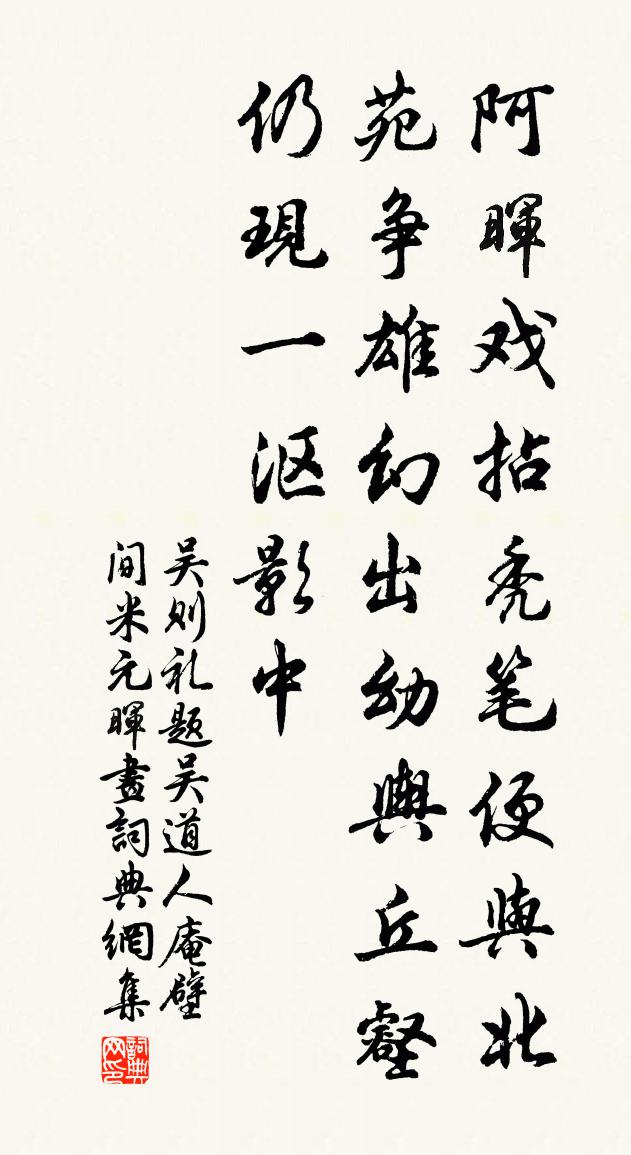 阿暉戏拈秃笔便與北
苑争雄幻出幼輿丘壑
仍現一沤影中
吴则礼题吴道人庵壁
间米元暉畫詞典網集
詞典网印